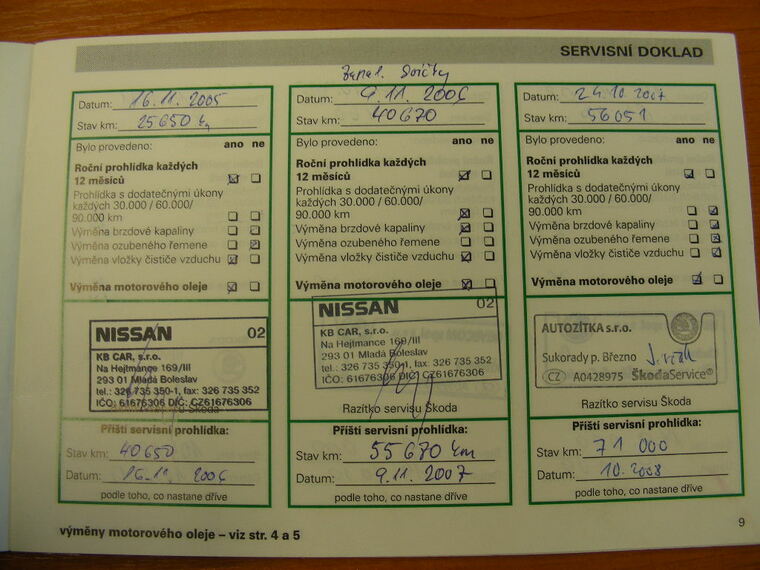 SERVISNÍ DOKLAD
Datum: 16.11.2005
Stav km: 25650 km
Bylo provedeno: ano ne
Roční prohlídka každých
12 měsíců
Prohlídka s dodatečnými úkony
každých 30.000 / 60.000/
90.000 km
Výměna brzdové kapaliny
Výměna ozubeného řemene
Výměna vložky čističe vzduchu
Výměna motorového oleje
NISSAN 02
KB CAR, s.r.o.
Na Hejtmance 169/III
293 01 Mladá Boleslav
tel.: 326 735 350-1, fax: 326 735 352
IČO: 61676306 DIČ: CZ61676306
Příští servisní prohlídka:
Stav km: 40650
Datum: 16.11. 2006
podle toho, co nastane dříve
Datum: 9.11.2006
Stav km: 40670
Bylo provedeno: ano ne
Roční prohlídka každých
12 měsíců
Prohlídka s dodatečnými úkony
každých 30.000 / 60.000/
90.000 km
Výměna brzdové kapaliny
Výměna ozubeného řemene
Výměna vložky čističe vzduchu
Výměna motorového oleje
NISSAN 02
KB CAR, s.r.o.
Na Hejtmance 169/III
293 01 Mladá Boleslav
tel.: 326 735 350-1, fax: 326 735 352
IČO: 61676306 DIČ: CZ61676306
Razítko servisu Škoda
Příští servisní prohlídka:
Stav km: 55670 km
Datum: 9.11.2007
podle toho, co nastane dříve
Datum: 24.10.2007
Stav km: 56051
Bylo provedeno: ano ne
Roční prohlídka každých
12 měsíců
Prohlídka s dodatečnými úkony
každých 30.000 / 60.000/
90.000 km
Výměna brzdové kapaliny
Výměna ozubeného řemene
Výměna vložky čističe vzduchu
Výměna motorového oleje
AUTOZÍTKA s.r.o.
Sukorady p. Březno
CZ A0428975 ŠkodaService®
Razítko servisu Škoda
Příští servisní prohlídka:
Stav km: 71 000
Datum: 10.2008
podle toho, co nastane dříve
výměny motorového oleje – viz str. 4 a 5
9